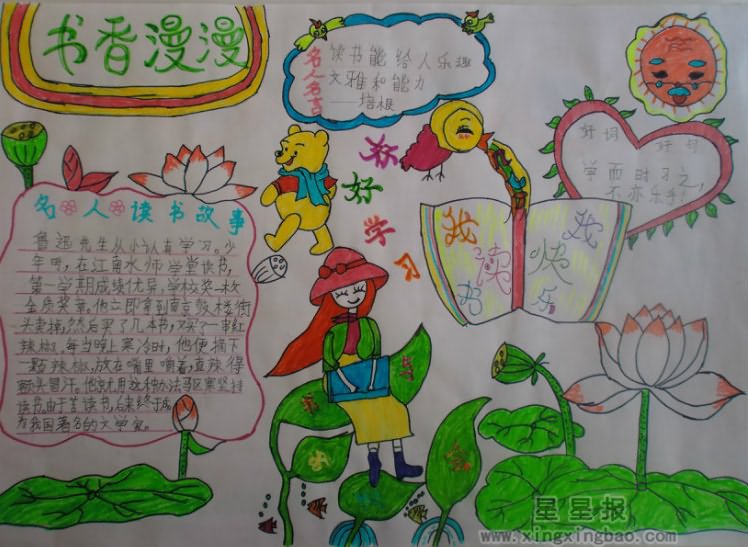 书香漫漫
名人名言
读书能给人乐趣
文雅和能力
——培根
好好学习
好词 好句
学而时习之,
不亦乐乎!
我读书
我快乐
名人读书故事
鲁迅先生从小认真学习。少
年时,在江南水师学堂读书,
第一学期成绩优异,学校奖一枚
金质奖章。他立即拿到南京鼓楼街
头卖掉,然后买了几本书,又买了一串红
辣椒。每当晚上寒冷时,他便摘下
一颗辣椒,放在嘴里嚼着,直辣得
额头冒汗。他就用这种办法驱寒坚持
读书。由于苦读书,后来终于成
为我国著名的文学家。
星星报
www.xingxingbao.com